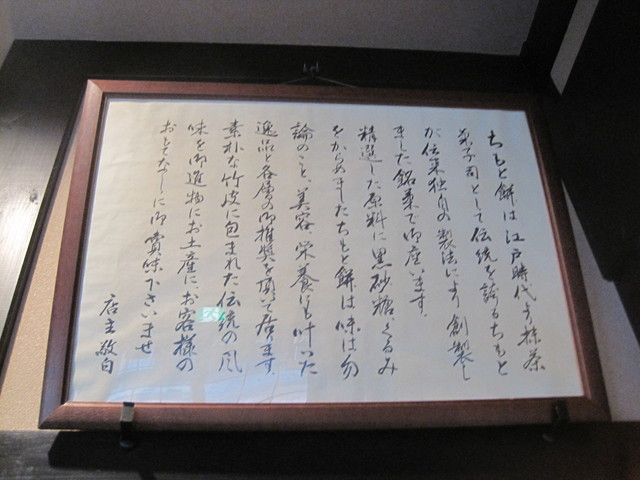 ちもと餅は江戸時代より抹茶
菓子司として伝統を誇るちもと
が伝来独自の製法により創製し
ました銘菓で御座います。
精選した原料に黒砂糖、くるみ
をからめましたちもと餅は味は勿
論のこと、美容、栄養にも叶いた
逸品と各層の御推奨を頂いて居ります。
素朴な竹皮に包まれた伝統の風
味を御進物にお土産に、お客様の
おもてなしに御賞味下さいませ
店主敬白